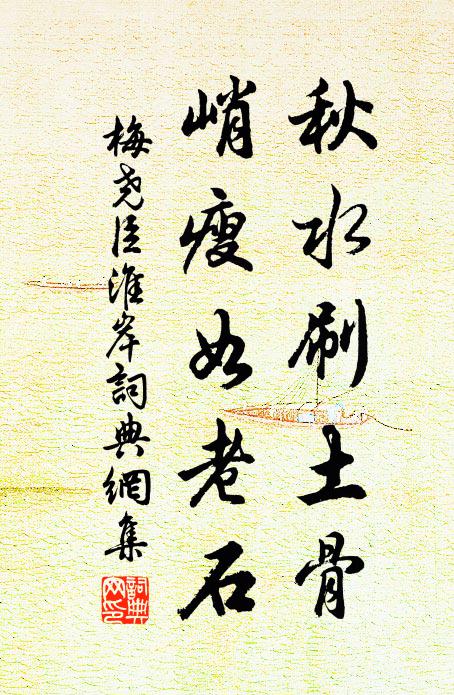 秋水刷土骨
峭瘦如老石
梅尧臣淮岸詞典網集
詞典网印